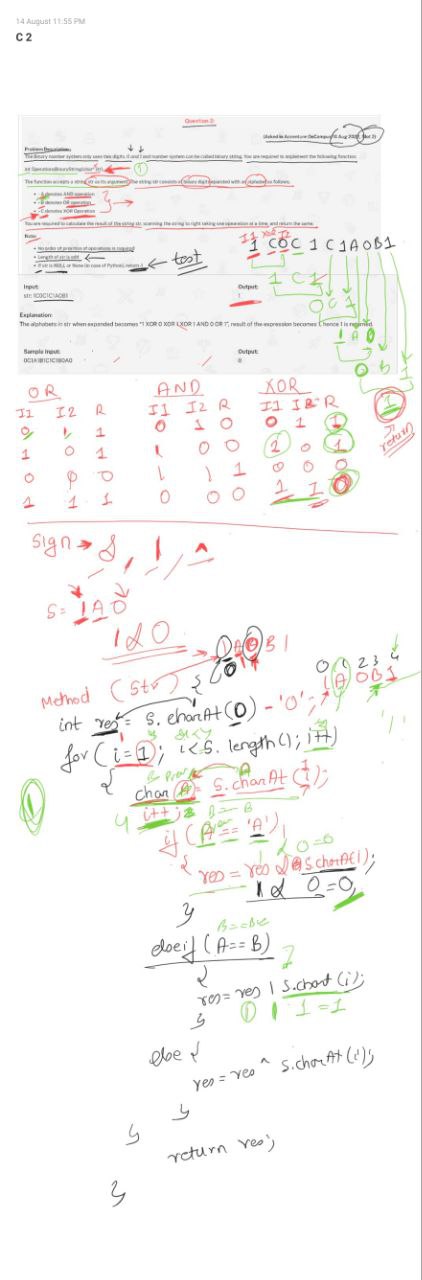 14 August 11:55 PM
C 2
Question 2:
(Asked in Accenture OnCampus 10 Aug 2021, Slot 2)
Problem Description:
The Binary number system only uses two digits, 0 and 1 and number system can be called binary string. You are required to implement the following function:
int OperationsBinaryString(char* str);
The function accepts a string str as its argument. The string str consists of binary digits separated with an alphabet as follows:
- A denotes AND operation
- B denotes OR operation
- C denotes XOR Operation
You are required to calculate the result of the string str, scanning the string to right taking one operation at a time, and return the same.
Note:
- No order of priorities of operations is required
- Length of str is odd
- If str is NULL or None (in case of Python), return -1
test
I1 XOR I2
1 C 0 C 1 C 1 A 0 B 1
1 C 1
0 C 1
1 A 0
0 B 1
1
return
Input:
str: 1C0C1C1A0B1
Output:
1
Explanation:
The alphabets in str when expanded becomes "1 XOR 0 XOR 1 XOR 1 AND 0 OR 1", result of the expression becomes 1, hence 1 is returned.
Sample Input:
0C1A1B1C1C1B0A0
Output:
0
OR AND XOR
I1 I2 R I1 I2 R I1 I2 R
0 1 1 0 1 0 0 1 1
1 0 1 1 0 0 1 0 1
0 0 0 1 1 1 0 0 0
1 1 1 0 0 0 1 1 0
Sign → & , | , ^
S = 1 A 0
1 & 0
1 A 0 B 1
Method (str) {
0 1 2 3 4
1 A 0 B 1
int res = s.charAt(0) - '0';
for (i=1; i<s.length(); i++)
{
char A = s.charAt(i);
i++;
if (A == 'A')
{
res = res & s.charAt(i);
1 & 0 = 0
}
else if (A == B)
{
res = res | s.chart(i);
1 1 = 1
}
else {
res = res ^ s.charAt(i);
}
}
return res;
}